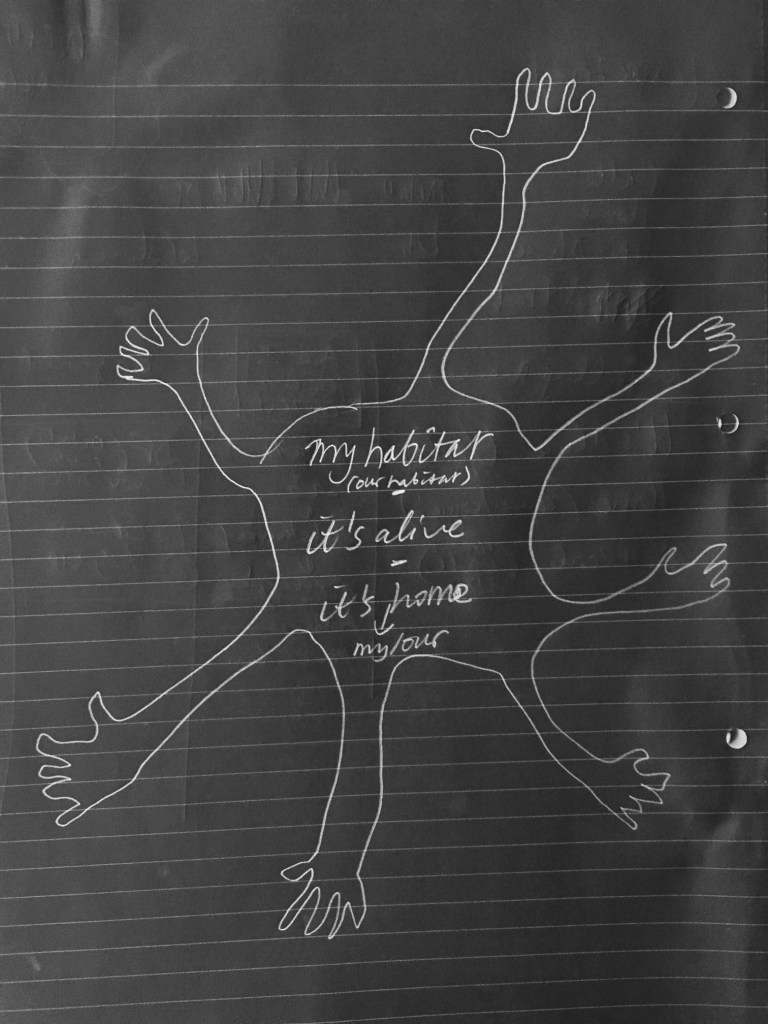 my habitat
(our habitat)
-
it's alive
-
it's home
↓
my/our